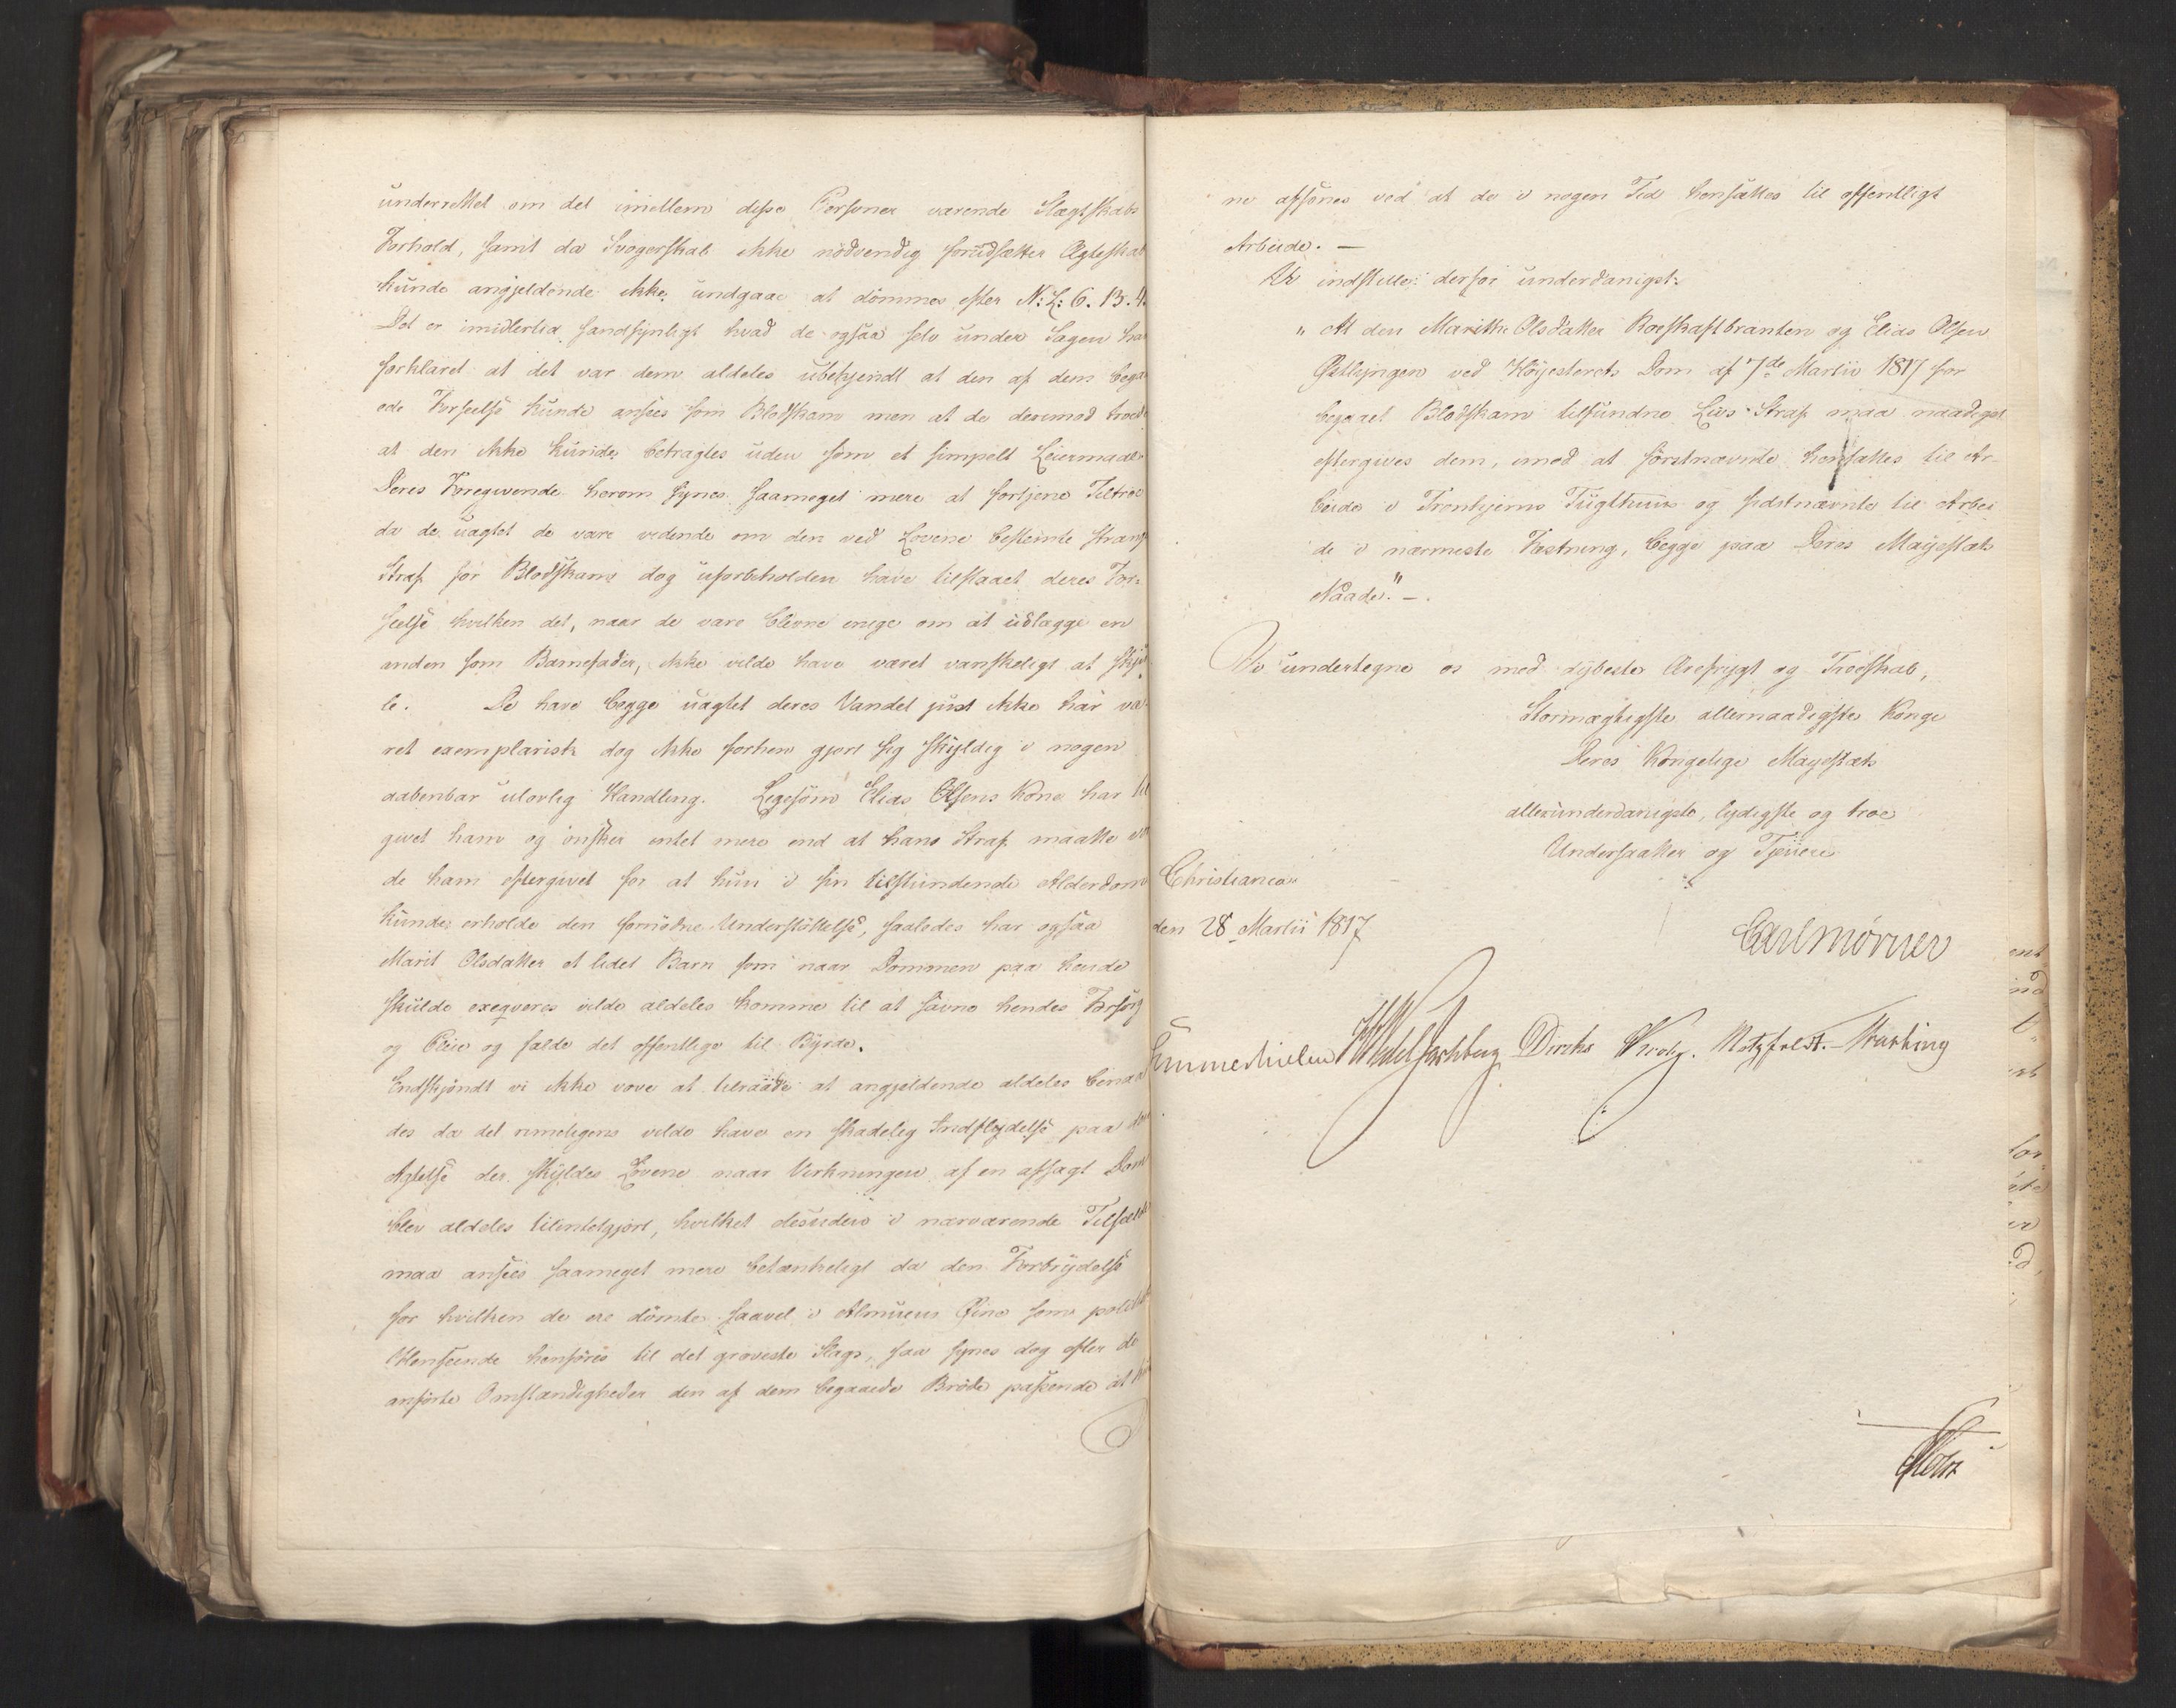 underrettet om det imellem disse Personer værende Slægtskabs
Forhold, samt da Svogerskab ikke nödvendig forudsætter Ægteskab
kunde angjeldende ikke undgaae at dömmes efter N: L: 6. 13. 4.
Det er imidlertid sandsynligt hvad de ogsaa selv under Sagen har
forklaret at det var dem aldeles ubekjendt at den af dem bega-
ede Forseelse kunde ansees som Blodskam men at de derimod troede
at den ikke kunde betragtes uden som et simpelt Leiermaal.
Deres Foregivende herom synes saameget mere at fortjene Tiltroe
da de uagtet de vare vidende om den ved Lovene bestemte strænge
Straf for Blodskam dog uforbeholden have tilstaaet deres For-
seelse hvilken det, naar de vare blevne enige om at udlægge en
anden som Barnefader, ikke vilde have været vanskeligt at skju-
le. De have begge uagtet deres Vandel just ikke har væ-
ret exemplarisk dog ikke forhen gjort sig skyldig i nogen
aabenbar ulovlig Handling. Ligesom Elias Olsens Kone har til
givet ham og önsker intet mere end at hans Straf maatte vor
de ham eftergivet for at hun i sin tilstundende Alderdom
kunde erholde den fornödne Understöttelse, saaledes har ogsaa
Marit Olsdatter et lidet Barn som naar Dommen paa hende
skulde exeqveres vilde aldeles komme til at savne hendes Forsörg
og Pleie og falde det offentlige til Byrde.
Endskjöndt vi ikke vove at tilraade at angjeldende aldeles benaa-
des da det rimeligens vilde have en skadelig Indflydelse paa den
Agtelse der skyldes Lovene naar Virkningen af en afsagt Dom
blev aldeles tilintetgjort, hvilket desuden i nærværende Tilfælde
maa ansees saameget mere betænkeligt da den Forbrydelse
for hvilken de ere dömte saavel i Almuens Öine som politisk
Henseende henföres til det groveste Slags, saa synes dog efter de
anförte Omstændigheder den af dem begaaede Bröde passende at kun
ne afsones ved at de i nogen Tid hensættes til offentligt
Arbeide. —
Vi indstille derfor underdanigst:
"At den Marithe Olsdatter Roeskaftbranten og Elias Olsen
Østlyngen ved Höyesterets Dom af 7de Martii 1817 for
begaaet Blodskam tilfundne Livs-Straf maa naadigst
eftergives dem, imod at förstnævnte hensættes til Ar-
beide i Tronhjems Tugthuus og sidstnævnte til Arbei
de i nærmeste Fæstning, begge paa Deres Majestæts
Naade." —.
Vi undertegne os med dybeste Ærefrygt og Troeskab,
Stormægtigste allernaadigste Konge
Deres Kongelige Majestæts
allerunderdanigste, lydigste og troe
Undersaatter og Tjenere
Christiania
den 28 Martii 1817
Carl Mörner
Sommerhielm HWedelJarlsberg Diriks Krog. Motzfeldt. — Treschow
Holst